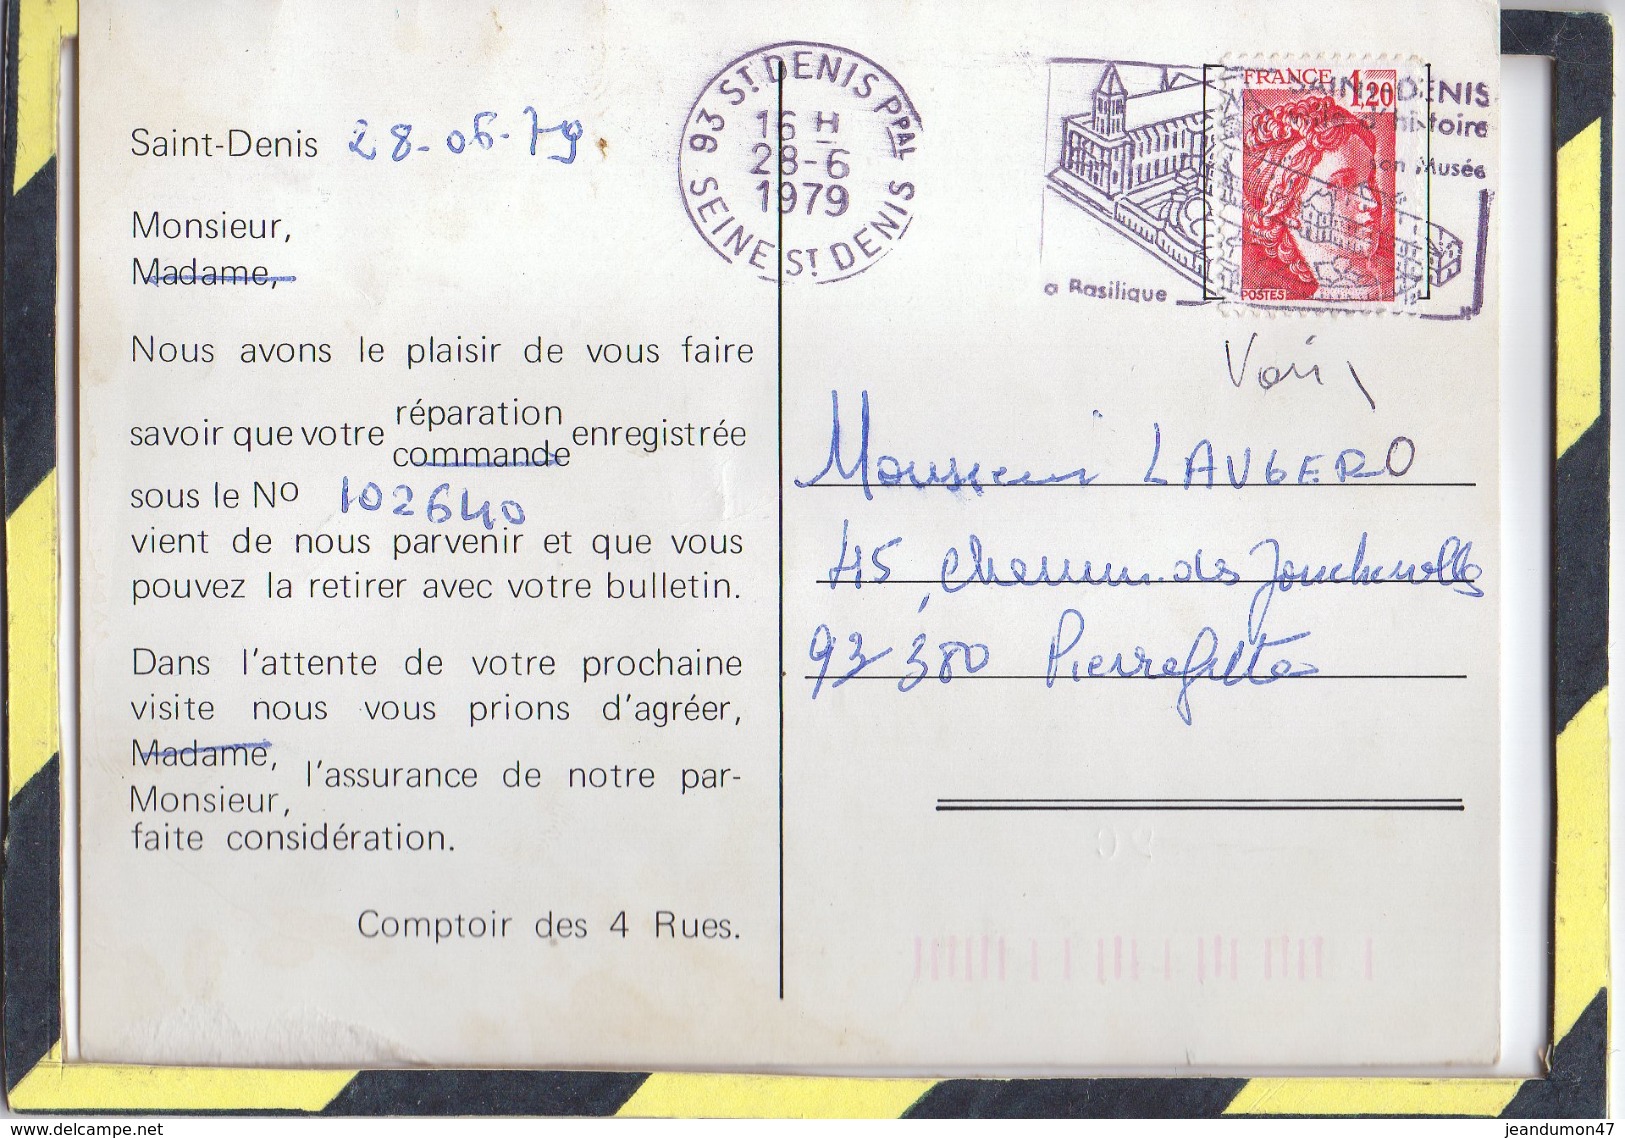 Saint-Denis 28-06-79.
Monsieur,
Madame,
Nous avons le plaisir de vous faire
savoir que votre réparation enregistrée
commande
sous le No 102640
vient de nous parvenir et que vous
pouvez la retirer avec votre bulletin.
Dans l'attente de votre prochaine
visite nous vous prions d'agréer,
Madame,
Monsieur, l'assurance de notre par-
faite considération.
Comptoir des 4 Rues.
93 ST DENIS PPAL
16 H
28-6
1979
SEINE ST DENIS
FRANCE 1,20
POSTES
SAINT DENIS
d'histoire
son Musée
a Basilique
Voir
Monsieur LAUGERO
45, chemin des Joncherolles
93 380 Pierrefitte
www.delcampe.net
jeandumon47